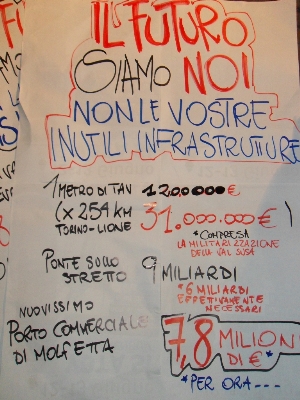 IL FUTURO
SIAMO NOI
NON LE VOSTRE
INUTILI INFRASTRUTTURE
1 METRO DI TAV 120.000€
(X 254 KM 31.000.000€ )
TORINO-LIONE *COMPRESA
LA MILITARIZZAZIONE
DELLA VAL SUSA
PONTE SULLO 9 MILIARDI
STRETTO *6 MILIARDI
EFFETTIVAMENTE
NECESSARI
NUOVISSIMO
PORTO COMMERCIALE 7,8 MILION
DI MOLFETTA DI €*
*PER ORA---